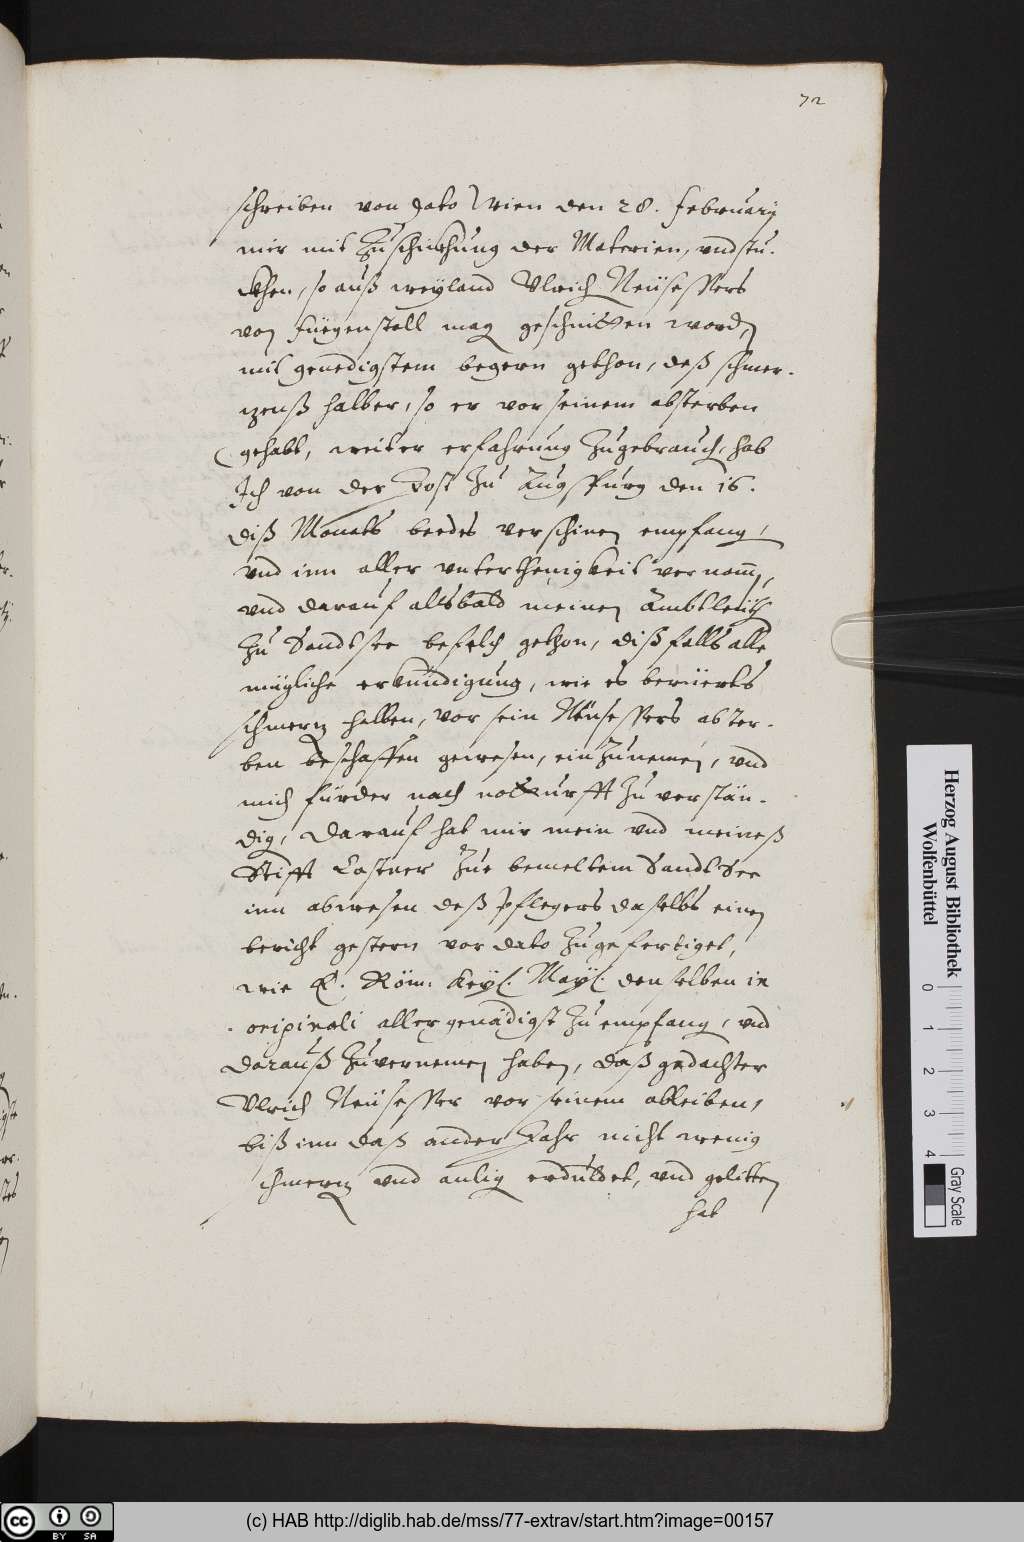 72
schreiben von dato Wien den 28. Februarij
mir mit Zuschickhung der Materien, vnd stu-
ckhen, so auß weyland Vlrich Neüsessers
von Füegenstall mag geschnitten word,
mit genedigstem begern gethon, deß schmer-
zenß halber, so er vor seinem absterben
gehabt, weiter erfahrung Zugebrauch, hab
Ich von der Post Zu Augspurg den 16.
diß Monats beedes verschinen empfang,
vnd inn aller vnterthenigkeit vernomen,
vnd darauf altsbald meinen Ambtleüth
Zu Sandtsee befelch gethon, dißfalls alle
mügliche erkündigung, wie es berüerts
schmerzen halben, vor sein Neüsessers abster-
ben beschaffen gewesen, einZunemen, vnd
mich fürder nach notturfft Zu verstän-
dig, Darauf hat mir mein vnd meineß
Stifft Castner Zue bemeltem SandtSee
inn abwesen deß Pflegers daselbs einen
bericht gestern vor dato Zugefertiget,
wie E. Röm: Key: May: denselben in
originali allergenädigst Zu empfang, vnd
darauß Zuvernemen haben, daß gedachter
Vlrich Neüsesser vor seinem ableiben,
biß inn daß ander Jahr nicht wenig
schmerzen vnd anlig erduldet, vnd gelitten
hat
Herzog August Bibliothek
Wolfenbüttel
0 1 2 3 4
Gray Scale
cc BY SA
(c) HAB http://diglib.hab.de/mss/77-extrav/start.htm?image=00157